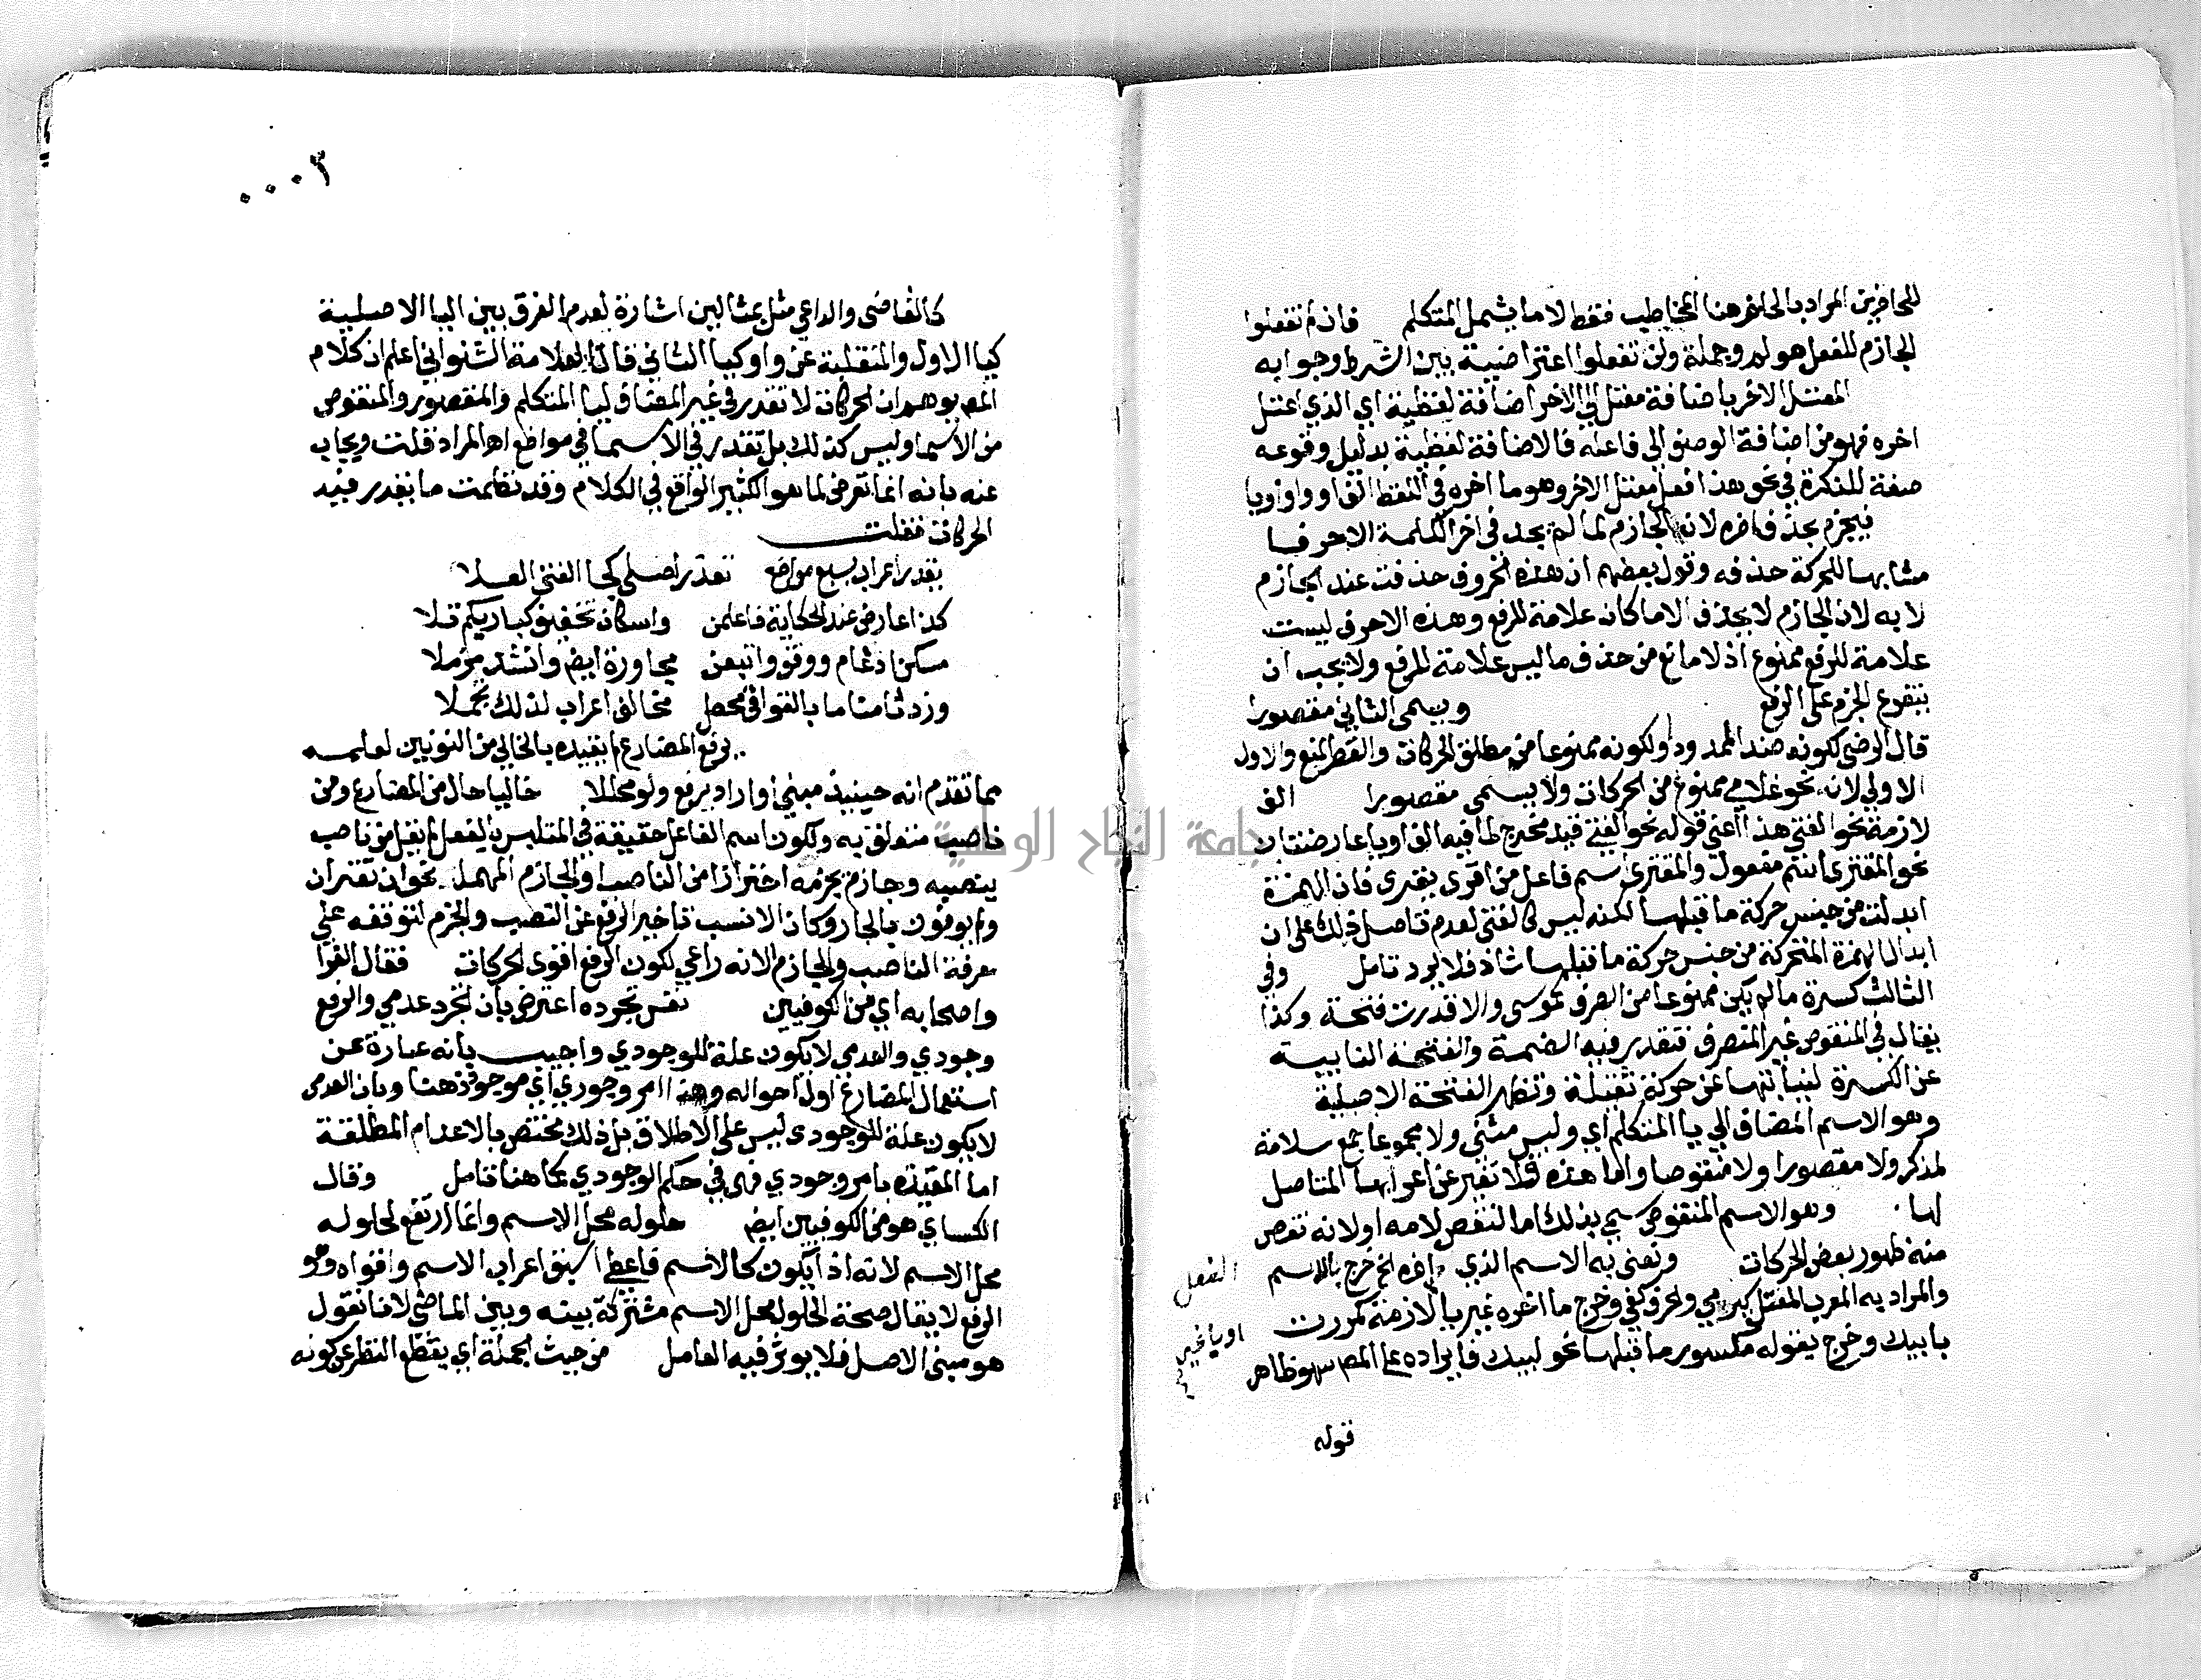 للحاضرين المراد بالحاضر هنا المخاطب فقط لا ما يشمل المتكلم فان لم تفعلوا
الجازم للفعل هو لم وجملة ولن تفعلوا اعتراضية بين الشرط وجوابه
المعتل الاخر باضافة معتل الى الاخر اضافة لفظية اي الذي اعتل
اخره فهو من اضافة الوصف الى فاعله فالاضافة لفظية بدليل وقوعه
صفة للنكرة في نحو هذا فعل معتل الاخر وهو ما اخره في اللفظ الف او واو او يا
فيجزم بحذف اخره لان الجازم لما لم يجد في اخر الكلمة الا حرفا
مشابها للحركة حذفه وقول بعضهم ان هذه الحروف حذفت عند الجازم
لا به لان الجازم لا يحذف الا ما كان علامة للرفع وهذه الاحرف ليست
علامة للرفع ممنوع اذ لا مانع من حذف ما ليس علامة للرفع ولا يجب ان
يتفرع الجزم على الرفع ويسمى الثاني مقصورا
قال الرضي لكونه ضد الممدود او لكونه ممنوعا من مطلق الحركات والقصر المنع والاول
الاولى لان نحو غلامي ممنوع من الحركات ولا يسمى مقصورا الف
لازمة نحو الفتى هذا اعني قوله نحو الفتى قيد مخرج لما فيه الف او يا عارضتان
نحو المقترى اسم مفعول والمقتري اسم فاعل من اقرى يقري فان الهمزة
ابدلت من جنس حركة ما قبلها لكنه ليس كالفتى لعدم تاصل ذلك على ان
ابدال الهمزة المتحركة من جنس حركة ما قبلها شاذ فلا يرد تامل وفي
الثالث كسرة ما لم يكن ممنوعا من الصرف كموسى والا قدرت فتحة وكذا
يقال في المنقوص غير المتصرف فتقدر فيه الضمة والفتحة النايبة
عن الكسرة لنيابتها عن حركة ثقيلة وتظهر الفتحة الاصلية
وهو الاسم المضاف الى يا المتكلم اي وليس مثنى ولا مجموعا جمع سلامة
لمذكر ولا مقصورا ولا منقوصا واما هذه فلا تغير عن اعرابها المتاصل
لها وهو الاسم المنقوص سمي بذلك اما لنقص لامه او لانه نقص
منه ظهور بعض الحركات ونعني به الاسم الذي اخره الخ خرج بالاسم الفعل
والمراد به المعرب المعتل كيرمي والحرف كفي وخرج ما اخره غير يا لازمة كمررت
بابيك وخرج بقوله مكسور ما قبلها نحو لبيك فايراده على المصـ سهو ظاهر
قوله
٣٠٠٠
كالقاضي والداعي مثل بمثالين اشارة لعدم الفرق بين اليا الاصلية
كيا الاول والمنقلبة عن واو كيا الثاني قال العلامة الشنواني اعلم ان كلام
المصـ يوهم ان الحركات لا تقدر في غير المضاف ليا المتكلم والمقصور والمنقوص
من الاسما وليس كذلك بل تقدر في الاسما في مواضع اهـ المراد قلت ويجاب
عنه بانه انما تعرض لما هو الكثير الواقع في الكلام وقد نظمت ما يقدر فيه
الحركات فقلت
يقدر اعراب بسبع مواضع تعذر اصلي كجا الفتى العلا
كذا عارض عند الحكاية فاعلمن واسكان تخفيف كباريكم تلا
مسكن ادغام ووقف واتبعن مجاورة ايض وانشد مزملا
وزد ثامنا ما بالقوافي محصل مخالف اعراب لذلك تجملا
يرفع المضارع لم يقيده بالخالي من النونين لعلمه
مما تقدم انه حينيذ مبني او اراد يرفع ولو محلا خاليا حال من المضارع ومن
ناصب متعلق به ولكون اسم الفاعل حقيقة في المتلبس بالفعل لم يقل من ناصب
ينصبه وجازم يجزمه احترازا من الناصب والجازم المهمل نحو ان تقران
ولم يوفون بالجار وكان الانسب تاخير الرفع عن النصب والجزم لتوقفه على
معرفة الناصب والجازم الا انه راعي لكون الرفع اقوى الحركات فقال الفرا
واصحابه اي من الكوفيين نفس تجرده اعترض بان التجرد عدمي والرفع
وجودي والعدمي لا يكون علة للوجودي واجيب بانه عبارة عن
استعمال المضارع اول احواله وهذا امر وجودي اي موجود ذهنا وبان العدمى
لا يكون علة للوجودى ليس على الاطلاق بل ذلك مختص بالاعدام المطلقة
اما المقيدة بامر وجودي فهي في حكم الوجودي كما هنا تامل وقال
الكساي هو من الكوفيين ايض حلوله محل الاسم وانما ارتفع لحلوله
محل الاسم لانه اذا يكون كالاسم فاعطى اسبق اعراب الاسم واقواه وهو
الرفع لا يقال صحة الحلول محل الاسم مشتركة بينه وبين الماضي لانا نقول
هو مبني الاصل فلا يوثر فيه العامل من حيث الجملة اي بقطع النظر عن كونه
جامعة النجاح الوطنية